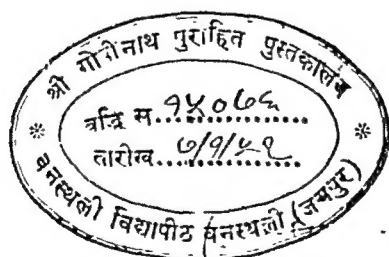 श्री गोपीनाथ पुरोहित पुस्तकालय
वृद्धि स १५०७६
तारीख ७/१/५१
वनस्थली विद्यापीठ वनस्थली (जयपुर)